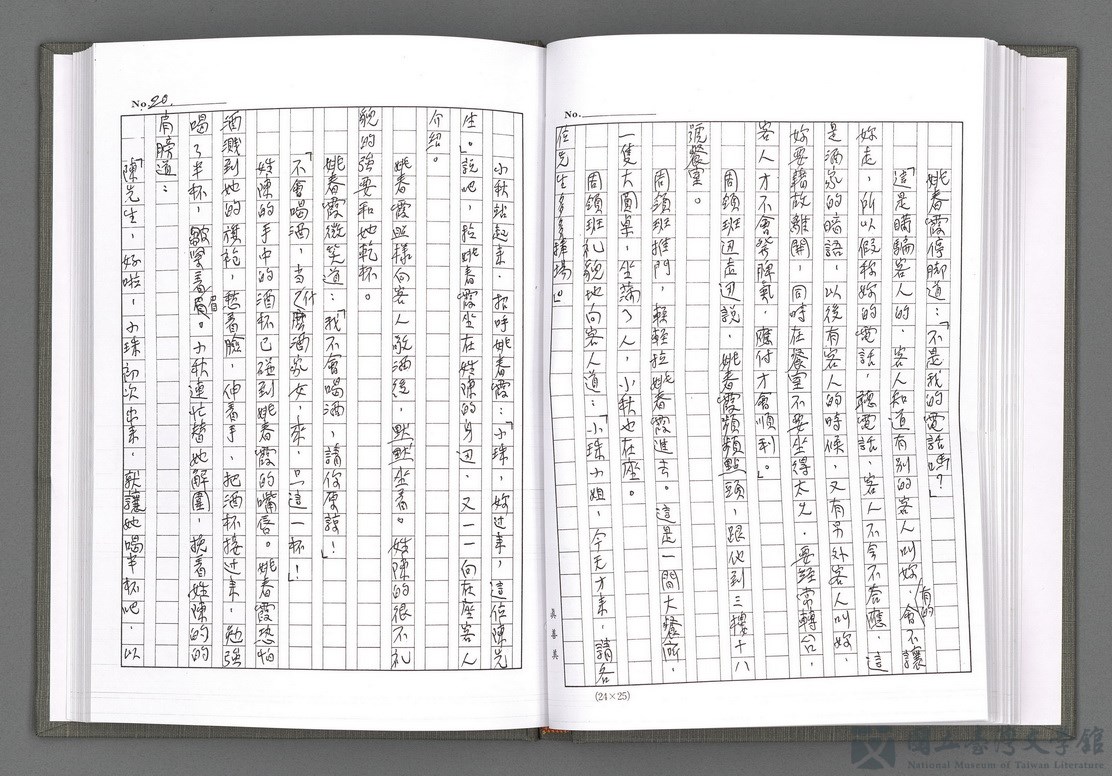 No.
姚春霞停脚道：「不是我的電話嗎？」
「這是瞞騙客人的，客人知道有別的客人叫妳，有的會不讓
妳走，所以假称妳的電話，聽電話，客人不会不答應，這
是酒家的暗語，以後有客人的時候，又有另外客人叫妳，
妳要藉故離開，同時在餐室不要坐得太久，要經常轉台，
客人才不會發脾氣，應付才會順利」。
周領班边走边說，姚春霞頻頻點頭，跟他到三樓十八
號餐室。
周領班推門，輕輕拉姚春霞進去。這是一間大餐所，
一隻大圓桌，坐滿了人，小秋也在座。
周領班礼貌地向客人道：「小珠小姐，今天才來，請各
位先生多多捧場」。
(24×25)
真善美
No. 20.
小秋站起來，招呼姚春霞：「小珠，妳过來，這位陳先
生」。說吧，拉姚春霞坐在姓陳的身边，又一一向在座客人
介紹。
姚春霞照樣向客人敬酒後，默默坐着。姓陳的很不礼
貌的強要和她乾杯。
姚春霞微笑道：「我不會喝酒，請你原諒！」
「不會喝酒，当什麼酒家女，來，只這一杯」！
姓陳的手中的酒杯已碰到姚春霞的嘴唇。姚春霞恐怕
酒濺到她的旗袍，愁着臉，伸着手，把酒杯接过來，勉強
喝了半杯，皺緊着眉。小秋連忙替她解圍，挽着姓陳的的
肩膀道：
「陳先生，好啦，小珠初次出來，就讓她喝半杯吧，以
國立臺灣文學館
National Museum of Taiwan Literature